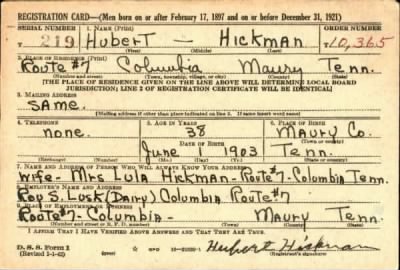 REGISTRATION CARD—(Men born on or after February 17, 1897 and on or before December 31, 1921)
SERIAL NUMBER 1. NAME (Print) ORDER NUMBER
T 219 Hubert — Hickman 10,365
(First) (Middle) (Last)
2. PLACE OF RESIDENCE (Print)
Route #7 Columbia Maury Tenn.
(Number and street) (Town, township, village, or city) (County) (State)
[THE PLACE OF RESIDENCE GIVEN ON THE LINE ABOVE WILL DETERMINE LOCAL BOARD
JURISDICTION; LINE 2 OF REGISTRATION CERTIFICATE WILL BE IDENTICAL]
3. MAILING ADDRESS
SAME.
(Mailing address if other than place indicated on line 2. If same insert word same)
4. TELEPHONE 5. AGE IN YEARS 6. PLACE OF BIRTH
none. 38 Maury Co.
DATE OF BIRTH (Town or county)
June 1 1903 Tenn.
(State or country)
7. NAME AND ADDRESS OF PERSON WHO WILL ALWAYS KNOW YOUR ADDRESS
wife - Mrs Lula Hickman - Route #7 - Columbia Tenn.
8. EMPLOYER'S NAME AND ADDRESS
Roy S. Lusk (Dairy) Columbia Route #7
9. PLACE OF EMPLOYMENT OR BUSINESS
Route #7 - Columbia - Maury Tenn.
(Number and street or R. F. D. number) (Town) (County) (State)
I AFFIRM THAT I HAVE VERIFIED ABOVE ANSWERS AND THAT THEY ARE TRUE.
D. S. S. Form 1
(Revised 1-1-42) Hubert Hickman
(Registrant's signature)